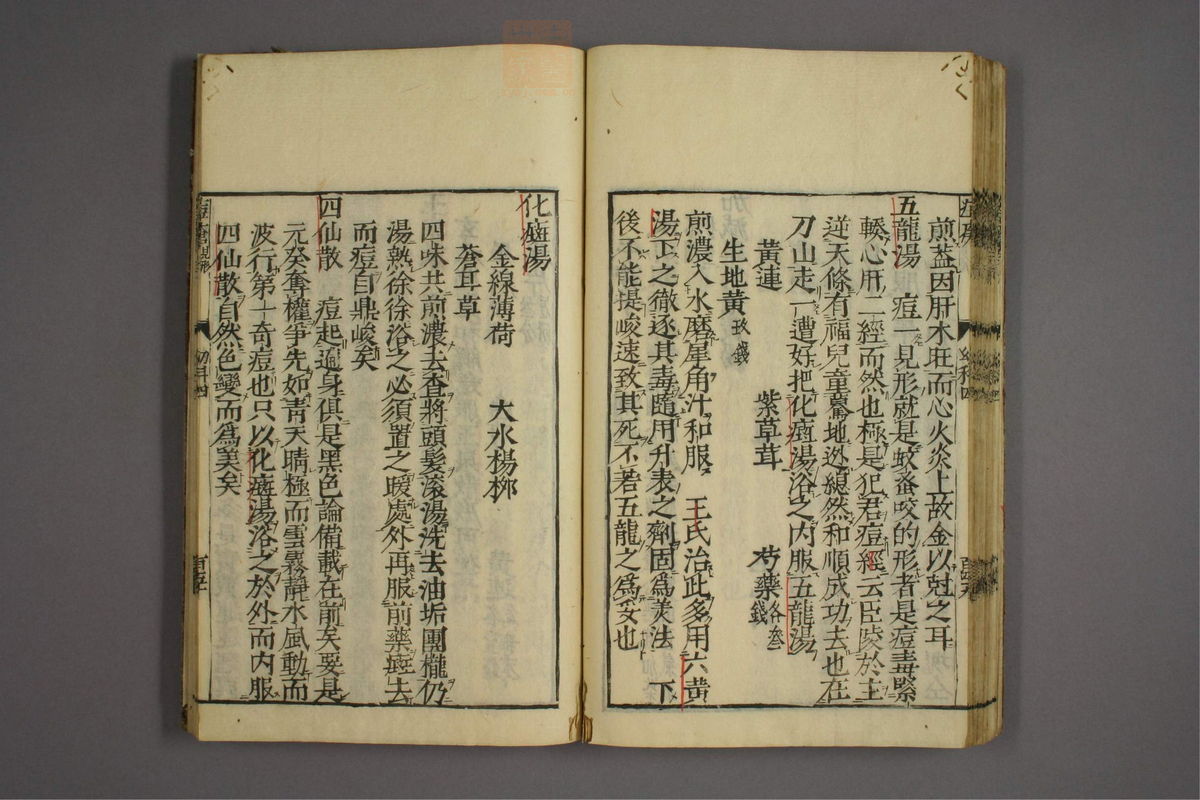 煎蓋因肝木旺而心火炎上故金以尅之耳
五龍湯　痘一見形就是蚊蚤咬的形者是痘毒緊
轃心肝二經而然也極是犯君痘經云臣陵於主
逆天條有福兒童驀地逃縱然和順成功去也在
刀山走一遭好把化癍湯浴之内服五龍湯
黄連　紫草茸　芍藥各叁錢
生地黄玖錢
煎濃入水磨犀角汁和服　王氏治此多用六黄
湯下之徹逐其毒隨用升表之劑固爲美法　下
後不能提峻速致其死不若五龍之爲妥也
化癍湯
金線薄荷　大水楊柳
蒼耳草
四味共煎濃去查將頭髮滚湯洗去油垢團櫳仍
湯熱徐徐浴之必須置之暖處外再服前藥癍去
而痘自鼎峻矣
四仙散　痘起遍身俱是黑色論備載在前矣要是
元癸奪權爭先如青天晴極而雲霧靜水風動而
波行第十奇痘也只以化癍湯浴之於外而内服
四仙散自然色變而爲美矣